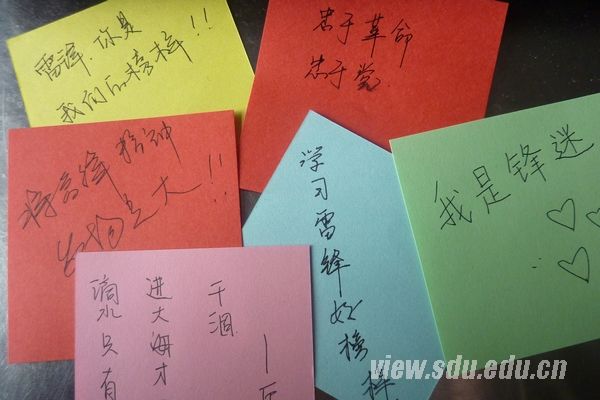 雷锋,你是
我们的榜样!!
忠于革命
忠于党
将雷锋精神
发扬光大!!
学习雷锋好榜样
我是锋迷
滴水只有
进大海才
干涸
view.sdu.edu.cn